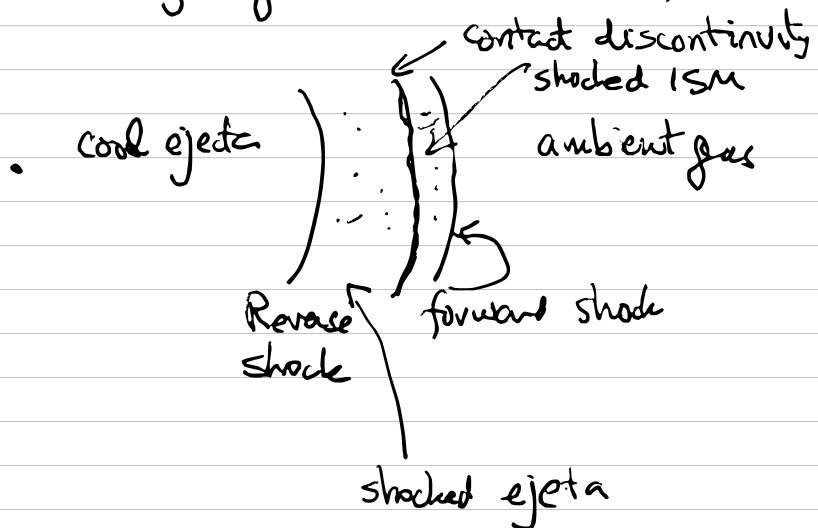 contact discontinuity
shocked ISM
cool ejecta
ambient gas
Reverse
shock
forward shock
shocked ejeta